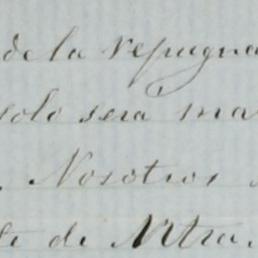 de la repugna
solo sera ma
. Nosotros
te de Ntra.